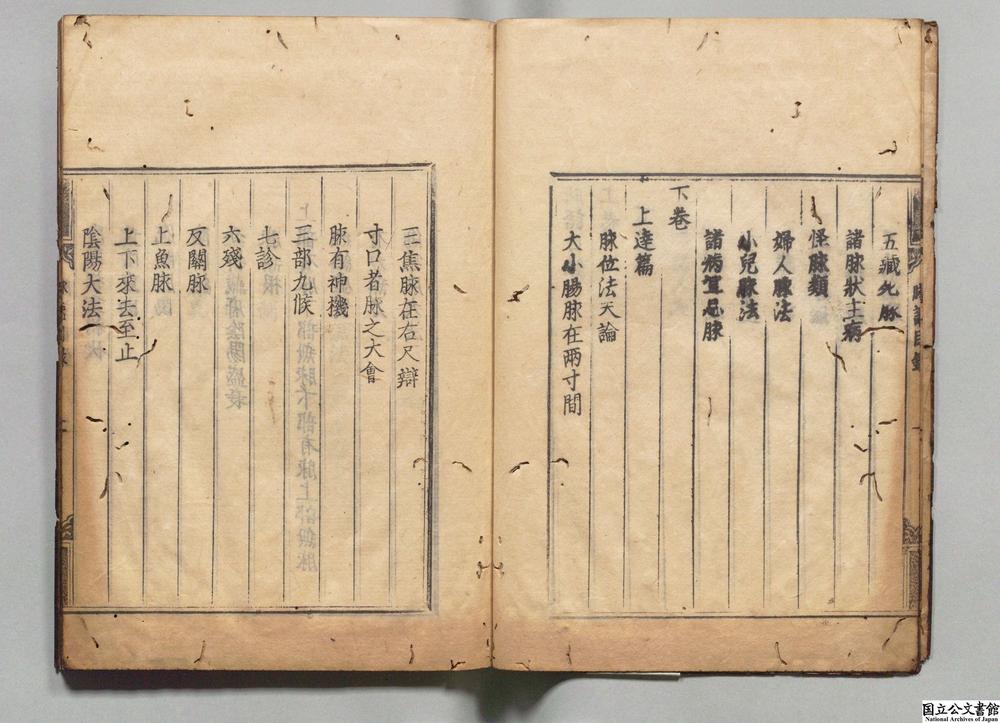 五藏死脉
諸脉狀主病
怪脉類
婦人脉法
小兒脉法
諸病宜忌脉
下卷
上達篇
脉位法天論
大小腸脉在兩寸間
三焦脉在右尺辯
寸口者脉之大會
脉有神機
三部九候
七診
六殘
反關脉
上魚脉
上下來去至止
陰陽大法
国立公文書館
National Archives of Japan